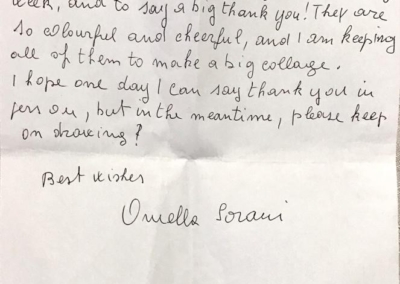 week, and to say a big thank you! They are
so colourful and cheerful, and I am keeping
all of them to make a big collage.
I hope one day I can say thank you in
person, but in the meantime, please keep
on drawing?
Best wishes
Ornella Sorani